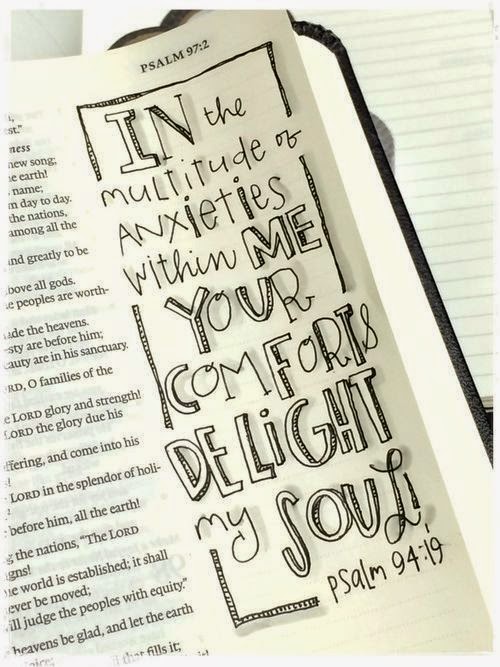 PSALM 97:2
IN the
multitude of
ANXieties
within ME
YOUR
COMFORTS
DELiGHT
my SOUL!
psalm 94:19
est."
new song;
e earth!
name;
m day to day.
the nations,
among all the
and greatly to be
bove all gods.
e peoples are worth-
ade the heavens.
sty are before him;
auty are in his sanctuary.
RD, O families of the
e LORD glory and strength!
LORD the glory due his
ffering, and come into his
LORD in the splendor of holi-
before him, all the earth!
g the nations, "The LORD
igns!
e world is established; it shall
ever be moved;
ill judge the peoples with equity."
heavens be glad, and let the earth
that fills it;